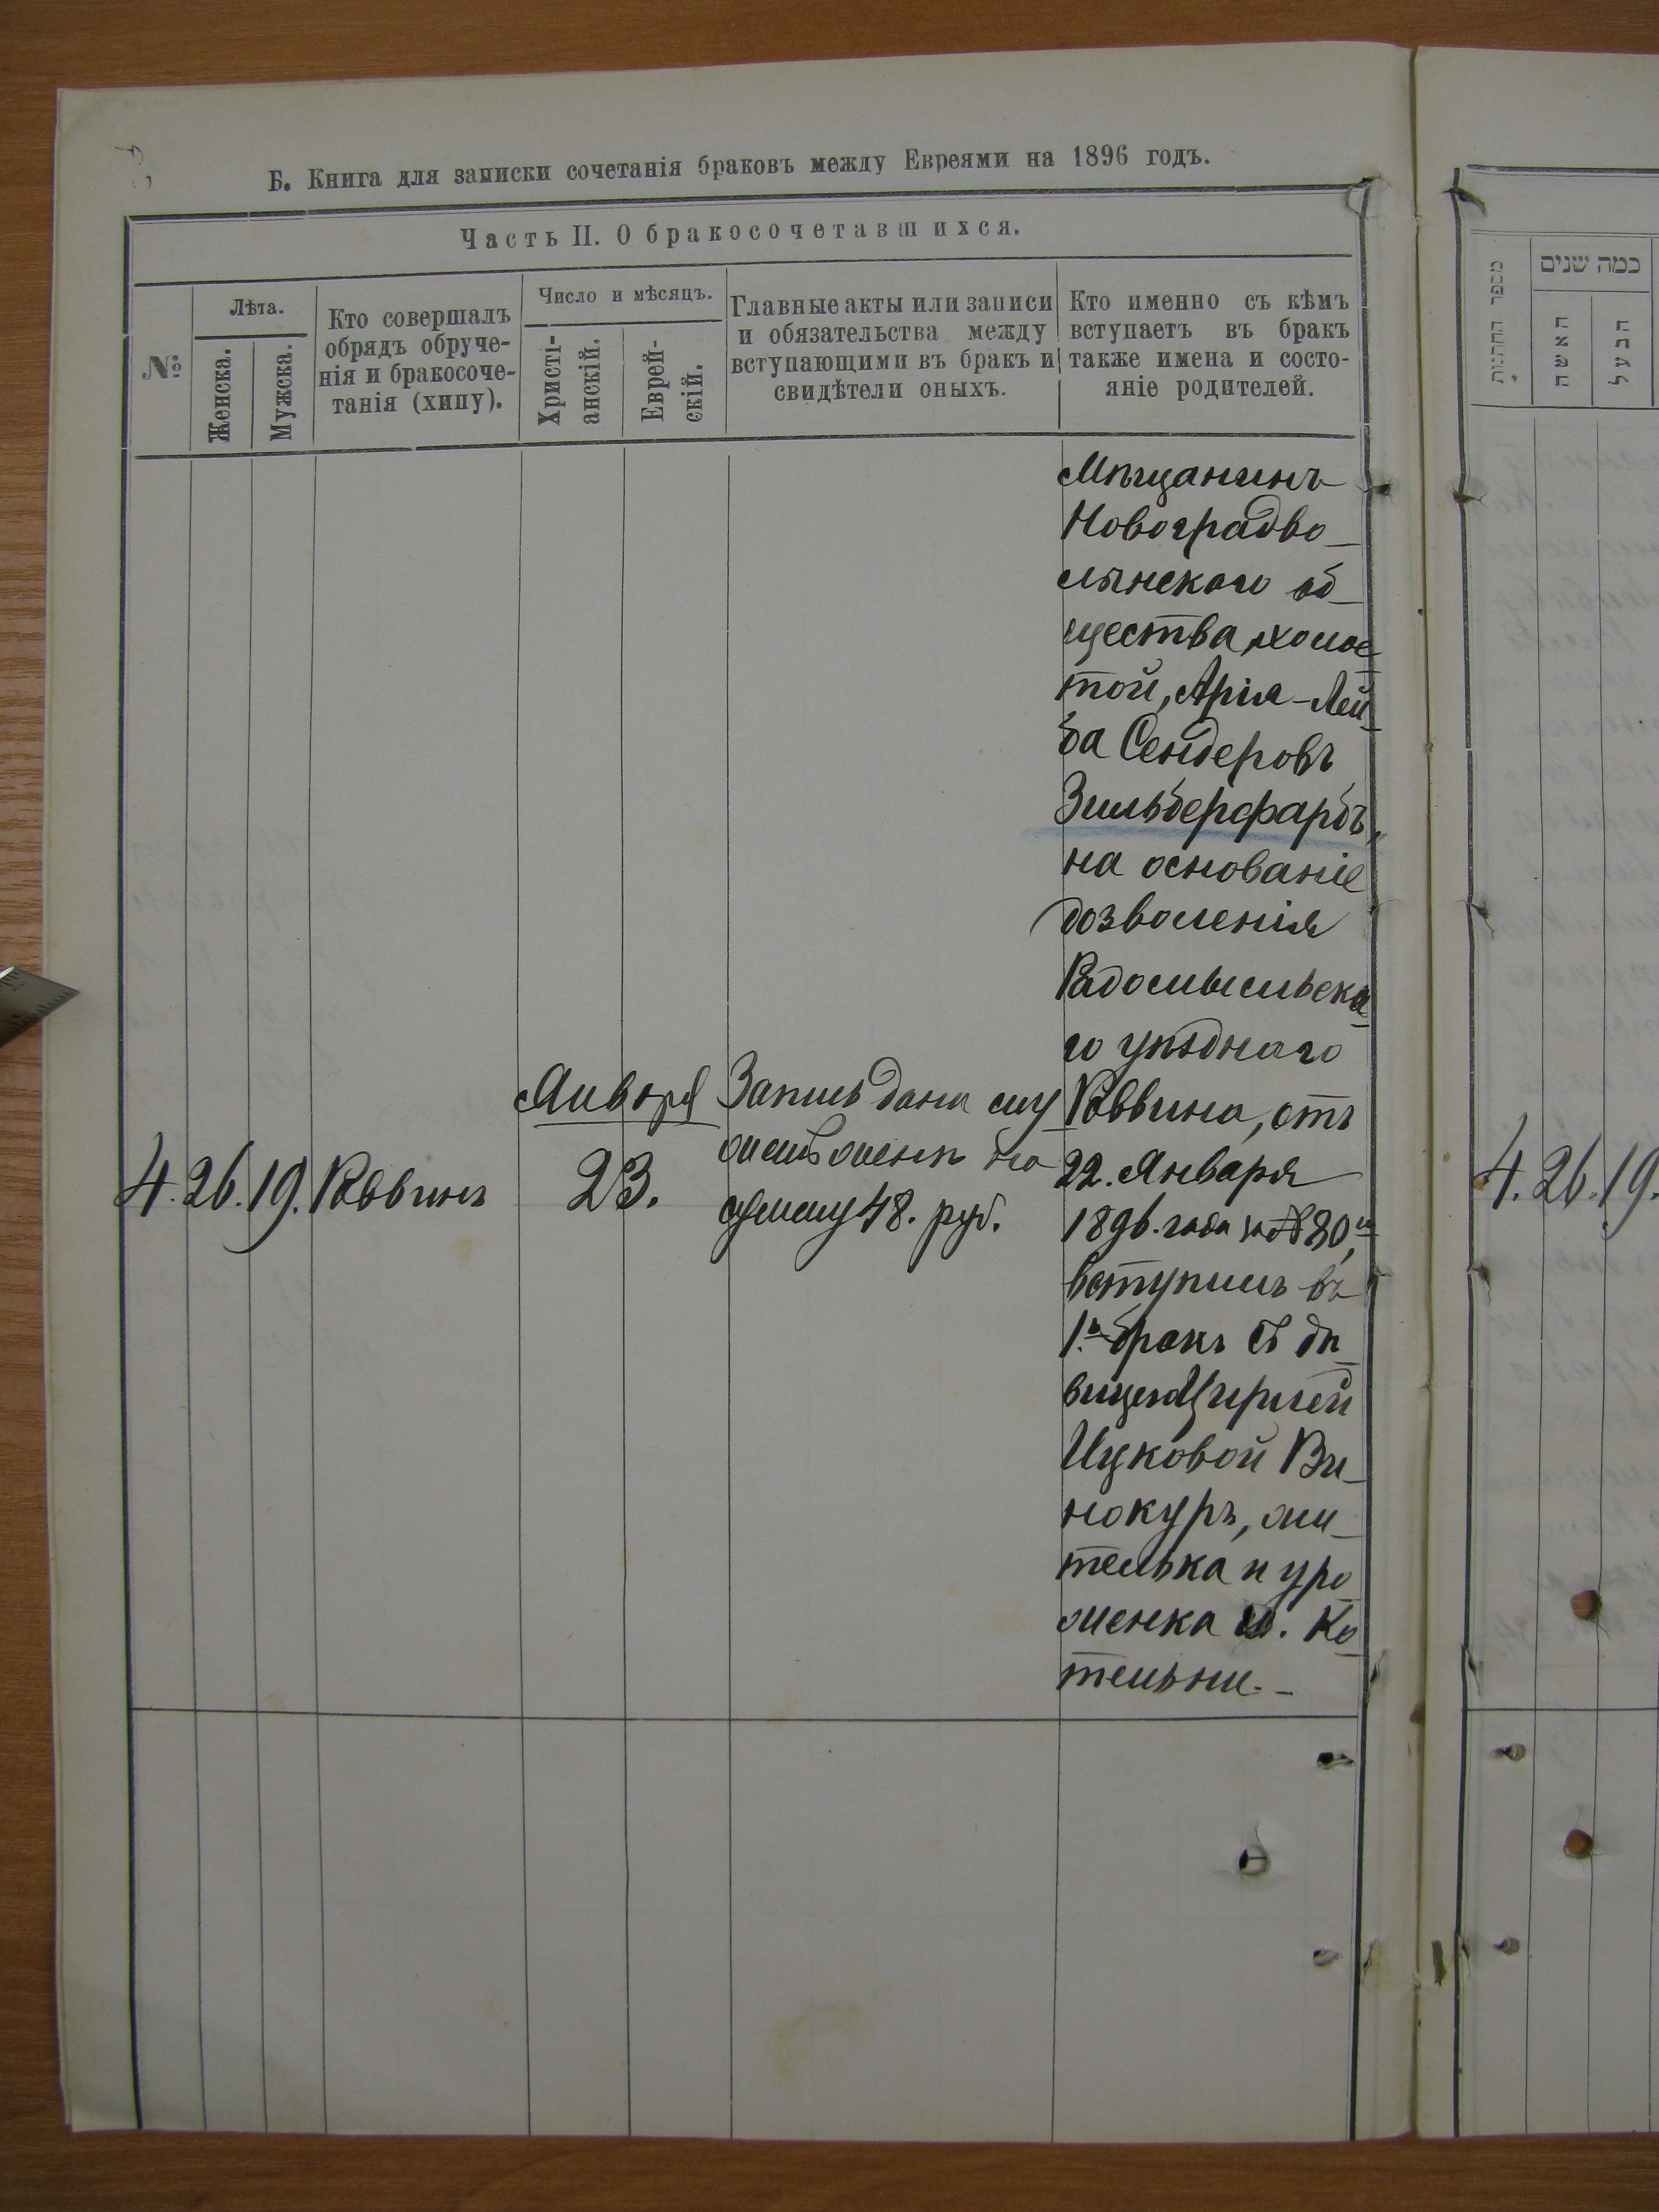 Б. Книга для записки сочетанія браковъ между Евреями на 1896 годъ.
Часть II. О бракосочетавшихся.
№
Лѣта.
Женска.
Мужска.
Кто совершалъ
обрядъ обруче-
нія и бракосоче-
танія (хипу).
Число и мѣсяцъ.
Христі-
анскій.
Еврей-
скій.
Главные акты или записи
и обязательства между
вступающими въ бракъ и
свидѣтели оныхъ.
Кто именно съ кѣмъ
вступаетъ въ бракъ
также имена и состо-
яніе родителей.
4. 26. 19. Раввинъ
Января
23.
Запись дана му
жемъ женѣ на
сумму 48. руб.
Мѣщанинъ
Новоградво-
лынскаго об-
щества, холос
той, Арія-Лей-
ба Сендеровъ
Зильберфарбъ,
на основаніе
дозволенія
Радомысльска-
го уѣзднаго
Раввина, отъ
22. Января
1896. года за №80,
вступилъ въ
1.й бракъ съ дѣ-
вицею Цирлей
Ицковой Ви-
нокуръ, жи-
телька и уро-
женка м. Ко-
тельни.-
מספר החתונות
כמה שנים
האשה
הבעל
4. 26. 19.